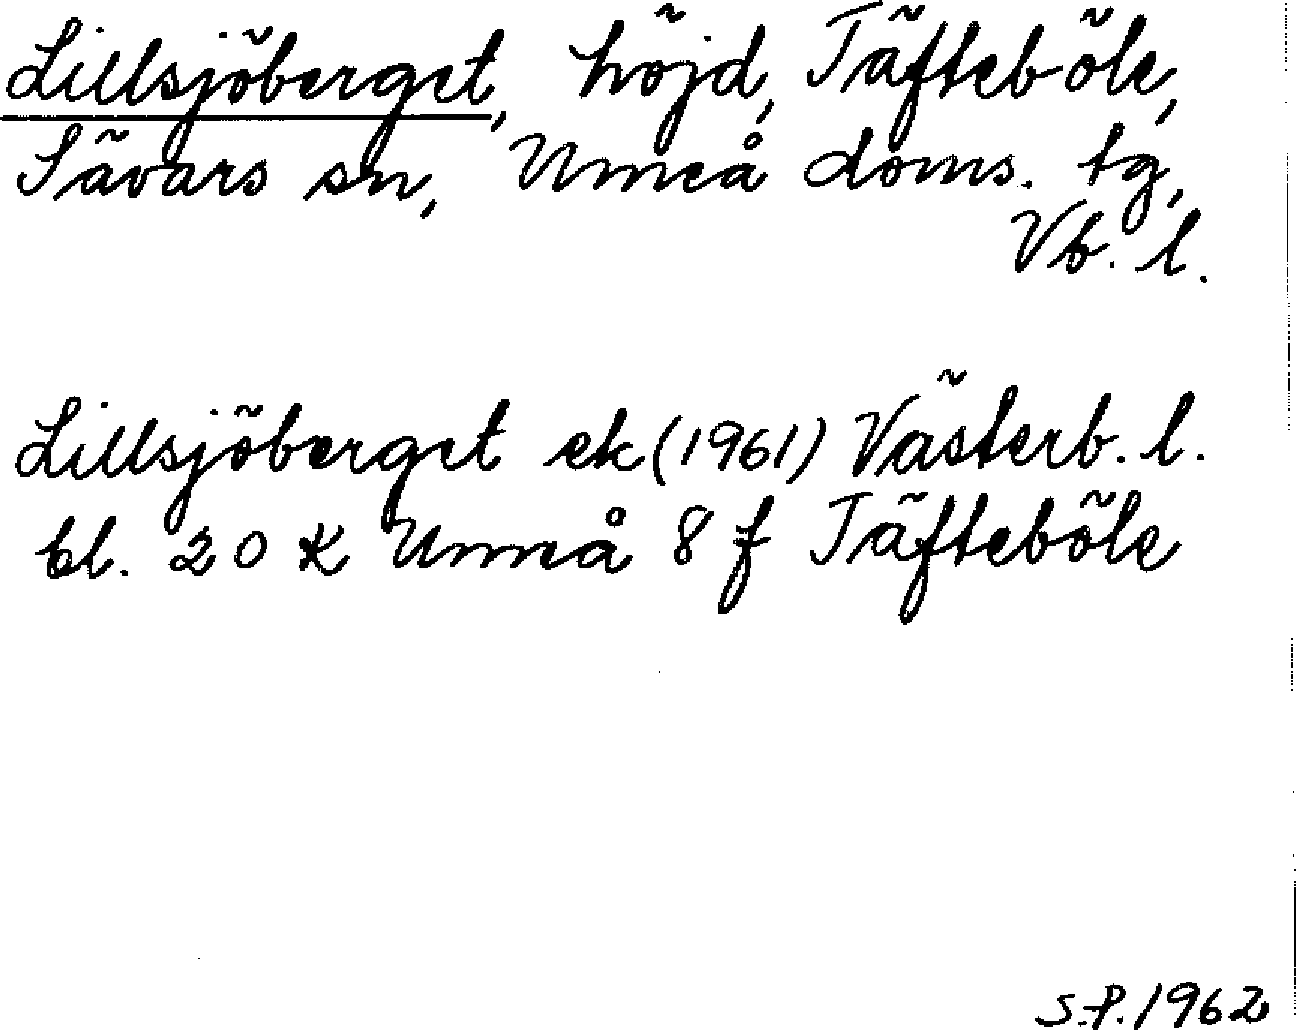 Lillsjöberget, höjd, Täfteböle,
Sävars sn, Umeå doms. tg,
Vb. l.
Lillsjöberget ek (1961) Västerb. l.
bl. 20 K Umeå 8 f Täfteböle
S.P. 1962